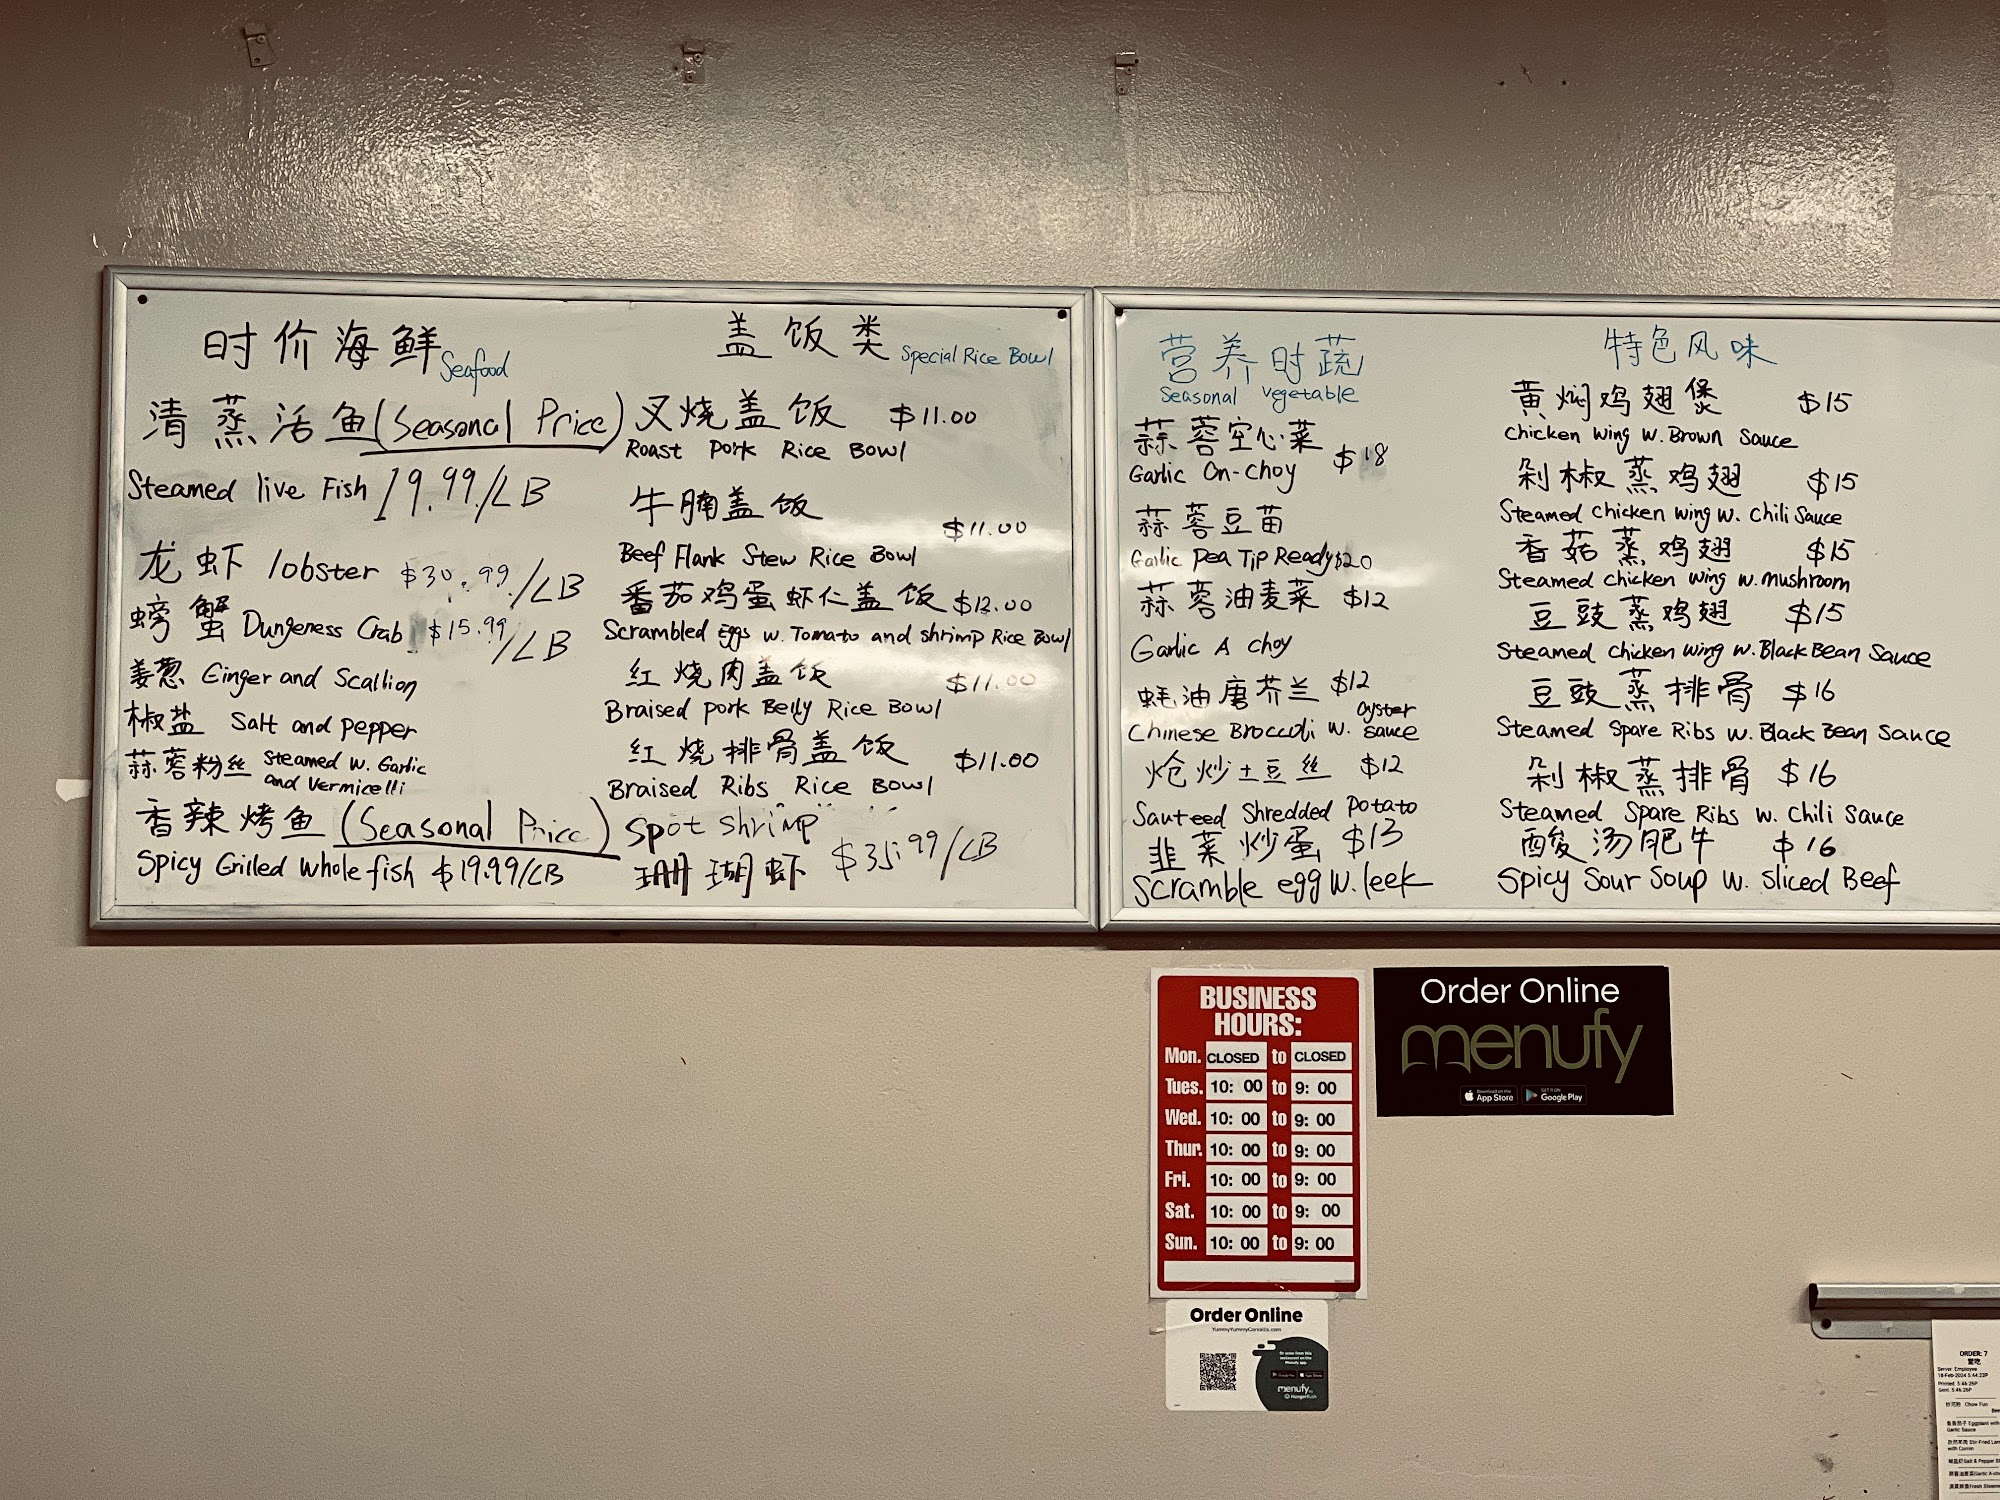 时价海鲜 Seafood
清蒸活鱼 (Seasonal Price)
Steamed live Fish 19.99/LB
龙虾 lobster $30.99/LB
螃蟹 Dungeness Crab $15.99/LB
姜葱 Ginger and Scallion
椒盐 Salt and pepper
蒜蓉粉丝 Steamed w. Garlic
and Vermicelli
香辣烤鱼 (Seasonal Price)
Spicy Grilled whole fish $19.99/LB
盖饭类 Special Rice Bowl
叉烧盖饭 $11.00
Roast Pork Rice Bowl
牛腩盖饭
$11.00
Beef Flank Stew Rice Bowl
番茄鸡蛋虾仁盖饭 $12.00
Scrambled Eggs w. Tomato and shrimp Rice Bowl
红烧肉盖饭 $11.00
Braised pork Belly Rice Bowl
红烧排骨盖饭 $11.00
Braised Ribs Rice Bowl
Spot shrimp
珊瑚虾 $35.99/LB
营养时蔬
Seasonal vegetable
蒜蓉空心菜
$18
Garlic On-choy
蒜蓉豆苗
Garlic Pea Tip Ready $20
蒜蓉油麦菜 $12
Garlic A choy
蚝油唐芥兰 $12
Chinese Broccoli w. oyster sauce
炝炒土豆丝 $12
Sauteed Shredded Potato
韭菜炒蛋 $13
Scramble egg w. leek
特色风味
黄焖鸡翅煲 $15
Chicken Wing w. Brown Sauce
剁椒蒸鸡翅 $15
Steamed chicken wing w. chili Sauce
香菇蒸鸡翅 $15
Steamed chicken wing w. mushroom
豆豉蒸鸡翅 $15
Steamed chicken wing w. Black Bean Sauce
豆豉蒸排骨 $16
Steamed Spare Ribs w. Black Bean Sauce
剁椒蒸排骨 $16
Steamed Spare Ribs w. Chili Sauce
酸汤肥牛 $16
Spicy Sour Soup w. sliced Beef
BUSINESS
HOURS:
Mon. CLOSED to CLOSED
Tues. 10: 00 to 9: 00
Wed. 10: 00 to 9: 00
Thur. 10: 00 to 9: 00
Fri. 10: 00 to 9: 00
Sat. 10: 00 to 9: 00
Sun. 10: 00 to 9: 00
Order Online
menufy
Download on the App Store
GET IT ON Google Play
Order Online
YummyYummyCorvallis.com
Or order from this
restaurant on the
Menufy app
menufy
ORDER: 7
堂吃
Server: Employee
18-Feb-2024 5:44:23P
Printed: 5:46:26P
Sent: 5:46:26P
炒河粉 Chow Fun
Bee
鱼香茄子 Eggplant with
Garlic Sauce
孜然羊肉 Stir-Fried Lam
with Cumin